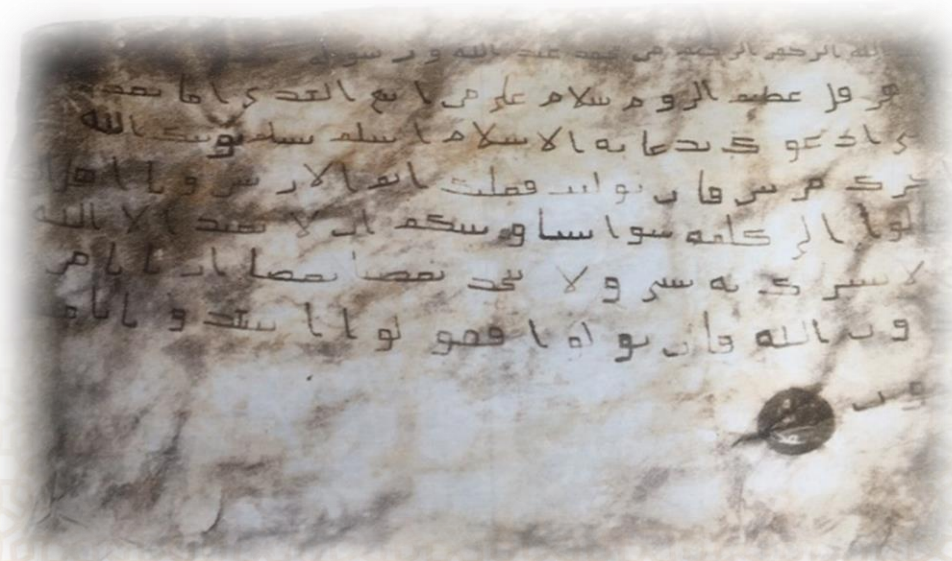 الله الرحمن الرحيم من محمد عبد الله ورسوله
هرقل عظيم الروم سلام على من اتبع الهدى اما بعد
ى ادعوك بدعاية الاسلام اسلم تسلم يوتك الله
جرك مرتين فان توليت فعليك اثم الاريسين ويا اهل
لوا الى كلمة سوا بيننا وبينكم ان لا نعبد الا الله
لا نشرك به شى ولا يتخذ بعضنا بعضا اربابا من
ون الله فان تولوا فقولوا اشهدوا بانا